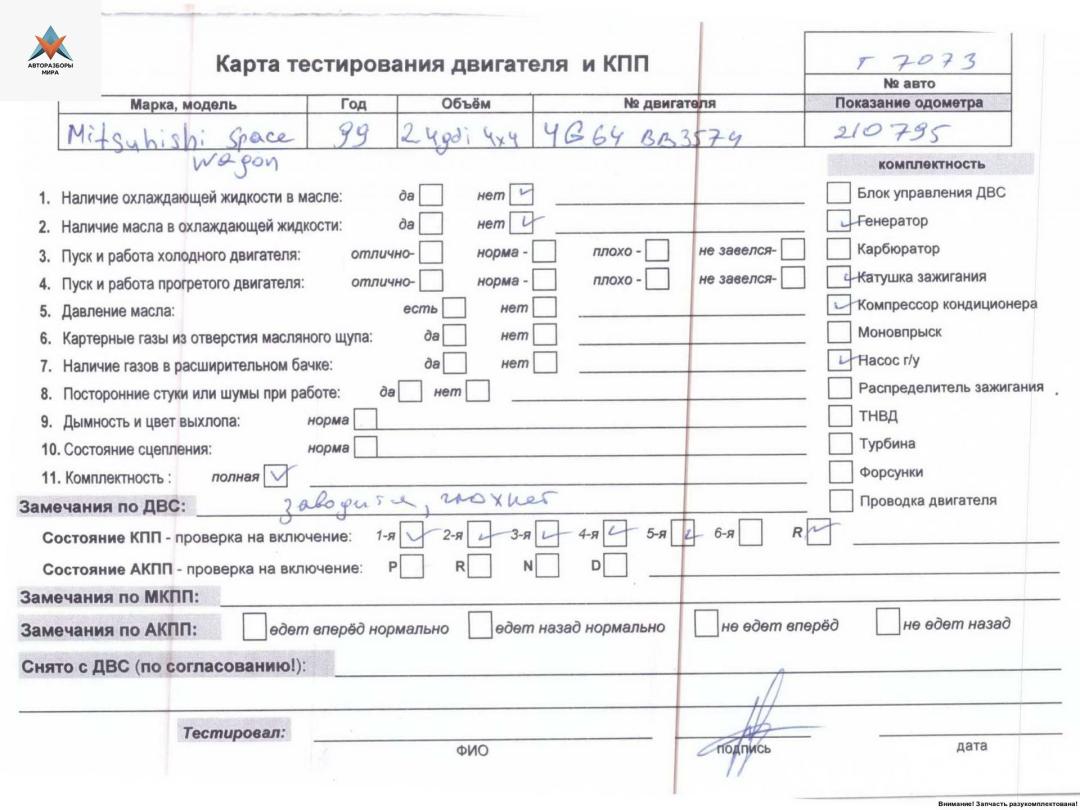 АВТОРАЗБОРЫ
МИРА
Карта тестирования двигателя и КПП
т 7073
№ авто
Марка, модель Год Объём № двигателя Показание одометра
Mitsubishi Space 99 2.4gdi 4x4 4G64 BB3574 210795
wagon
комплектность
1. Наличие охлаждающей жидкости в масле: да нет
Блок управления ДВС
2. Наличие масла в охлаждающей жидкости: да нет
Генератор
3. Пуск и работа холодного двигателя: отлично- норма - плохо - не завелся-
Карбюратор
4. Пуск и работа прогретого двигателя: отлично- норма - плохо - не завелся-
Катушка зажигания
5. Давление масла: есть нет
Компрессор кондиционера
6. Картерные газы из отверстия масляного щупа: да нет
Моновпрыск
7. Наличие газов в расширительном бачке: да нет
Насос г/у
8. Посторонние стуки или шумы при работе: да нет
Распределитель зажигания
9. Дымность и цвет выхлопа: норма
ТНВД
10. Состояние сцепления: норма
Турбина
11. Комплектность : полная
Форсунки
Замечания по ДВС: заводится, глохнет
Проводка двигателя
Состояние КПП - проверка на включение: 1-я 2-я 3-я 4-я 5-я 6-я R
Состояние АКПП - проверка на включение: P R N D
Замечания по МКПП:
Замечания по АКПП: едет вперёд нормально едет назад нормально не едет вперёд не едет назад
Снято с ДВС (по согласованию!):
Тестировал:
ФИО подпись дата
Внимание! Запчасть разукомплектована!